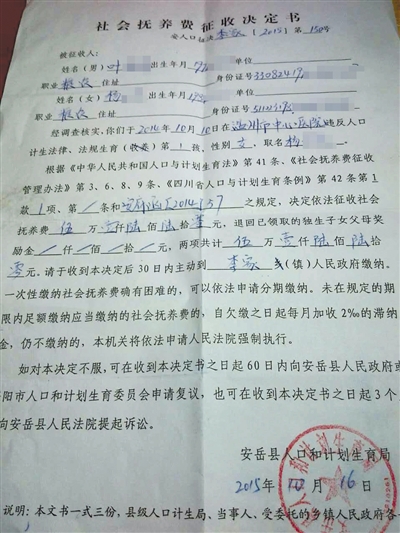 社会抚养费征收决定书
安人口征决李家[2015]第150号
被征收人:
姓名(男)叶 出生年月 单位
职业 农 住址 身份证号 3308241
姓名(女)杨 出生年月 单位
职业 农 住址 身份证号
经调查核实,你们于2014年10月10日在温州市中心医院违反人口
计生法律、法规生育(收养)第1孩,性别 女,取名杨
根据《中华人民共和国人口与计划生育法》第41条、《社会抚养费征收
管理办法》第3、6、8、9条、《四川省人口与计划生育条例》第42条第1
款1项、第/条和 [2014]37 之规定,决定依法征收社会
抚养费伍万壹仟陆佰陆拾零元,退回已领取的独生子女父母奖
励金/仟/佰/拾/元,两项共计伍万壹仟陆佰陆拾
零元。请于收到本决定后30日内主动到李家乡(镇)人民政府缴纳。
一次性缴纳社会抚养费确有困难的,可以依法申请分期缴纳。未在规定的期
限内足额缴纳应当缴纳的社会抚养费的,自欠缴之日起每月加收2‰的滞纳
金,仍不缴纳的,本机关将依法申请人民法院强制执行。
如对本决定不服,可在收到本决定书之日起60日内向安岳县人民政府或
阳市人口和计划生育委员会申请复议,也可在收到本决定书之日起3个
向安岳县人民法院提起诉讼。
安岳县人口和计划生育局
2015年10月16日
说明:本文书一式三份,县级人口计生局、当事人、受委托的乡镇人民政府各